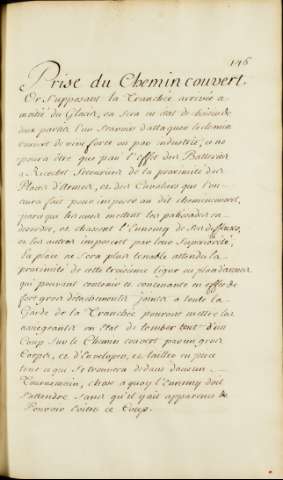 146
Prise du Chemin couvert.
Or Supposant la Tranchée arrivée a
moitié du Glacis, on sera en état de choisir de
deux partis l'un Scavoir d'attaquer le chemin
couvert de vive force ou par industrie, ce ne
poura être que par l'effet des Batteries
a Ricochet Secourues de la proximité des
Places d'Armes, et des Cavaliers que l'on
aura fait pour imposer au dit chemin couvert,
parce que les unes mettent les palissades en
desordre, et chassent l'Ennemy de ses défenses,
et les autres imposent par leur Supériorité,
la place ne Sera plus tenable attendu la
proximité de cette troisieme ligne ou place d'armes
qui pouvant contenir et contenante en effet de
fort gros détachements joints a toute la
Garde de la Tranchée pouront mettre les
assiegeants en État de tomber tout d'un
Coup Sur le Chemin couvert par un gros
Corps, et d'enveloper, et tailler en piece
tout ce qui Se trouvera dedans dans un
Tournemain, chose a quoy l'Ennemy doit
s'attendre Sans qu'il y ait apparence de
Pouvoir Eviter ce Coup.